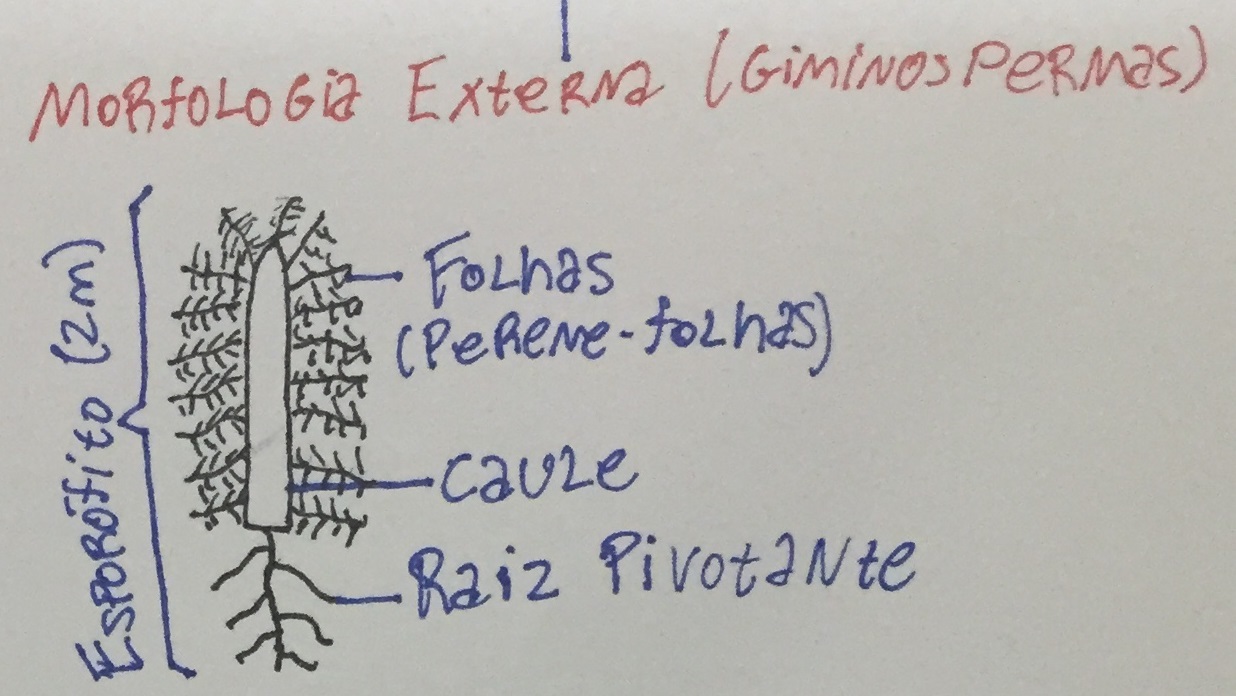 Morfologia Externa (Giminospermas)
Esporófito (2m)
Folhas
(Perene-folhas)
Caule
Raiz Pivotante